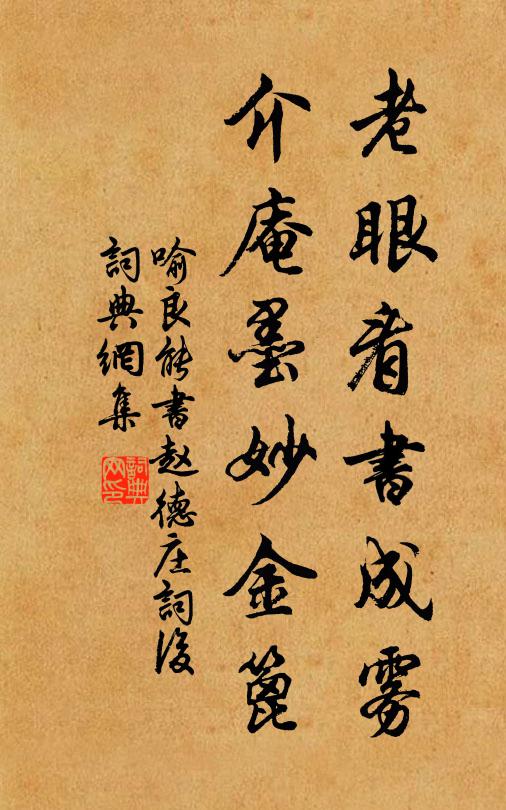 老眼看書成霧
介庵墨妙金篦
喻良能書赵德庄詞後
詞典網集
詞典网印